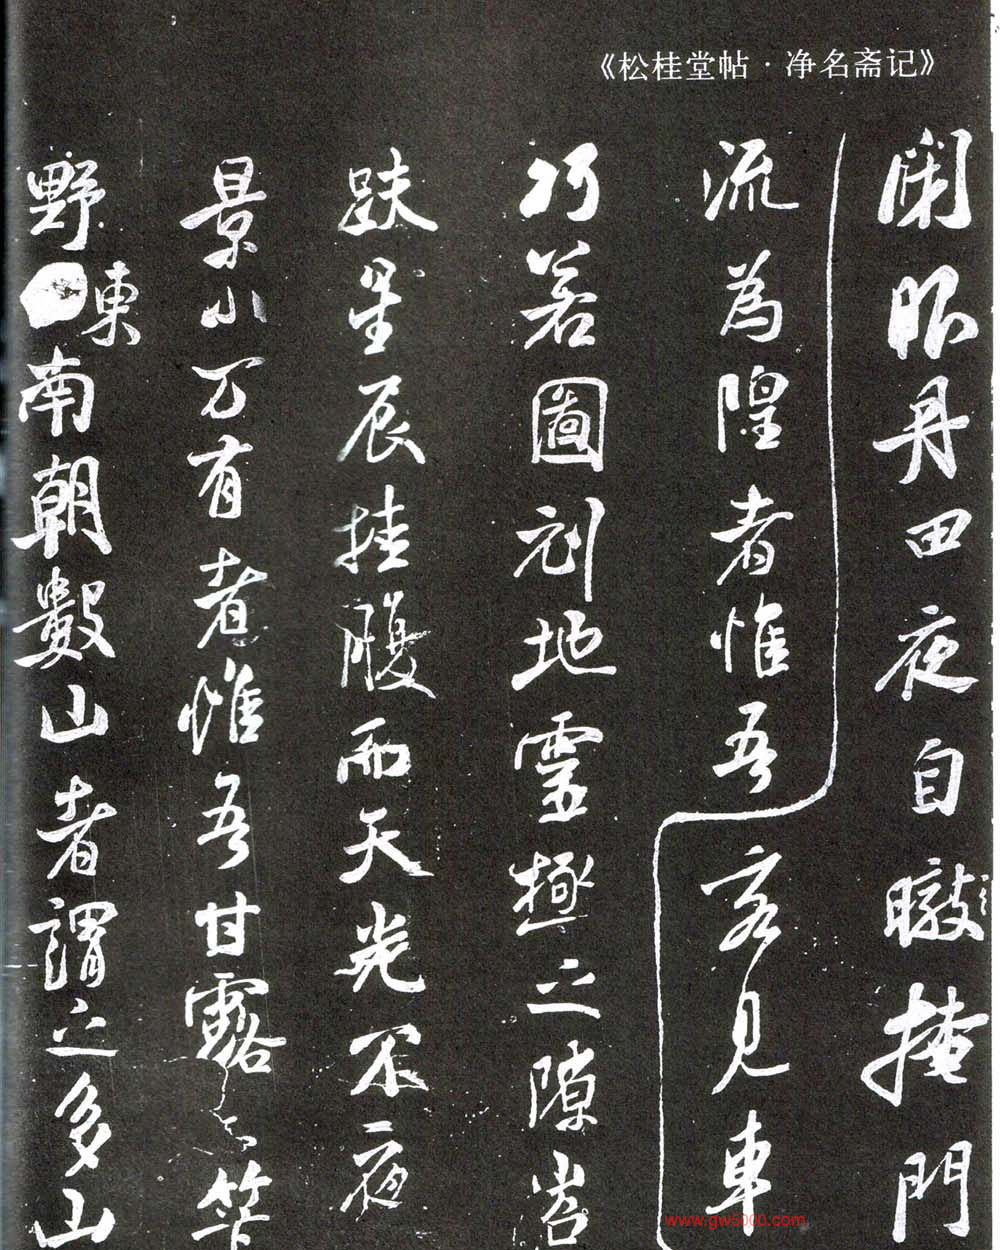 《松桂堂帖·净名斋记》
丹田夜自暾掩門
流為隍者惟吾客見車
巧若圖刻地靈極之隙
趺星辰挂腹而天光不夜
景小万有者惟吾甘露
野東南朝數山者謂之多山
www.gw5000.com